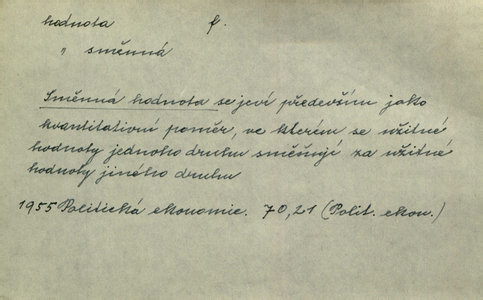 hodnota f.
" směnná
Směnná hodnota se jeví především jako
kvantitativní poměr, ve kterém se užitné
hodnoty jednoho druhu směňují za užitné
hodnoty jiného druhu
1955 Politická ekonomie. 70,21 (Polit. ekon.)